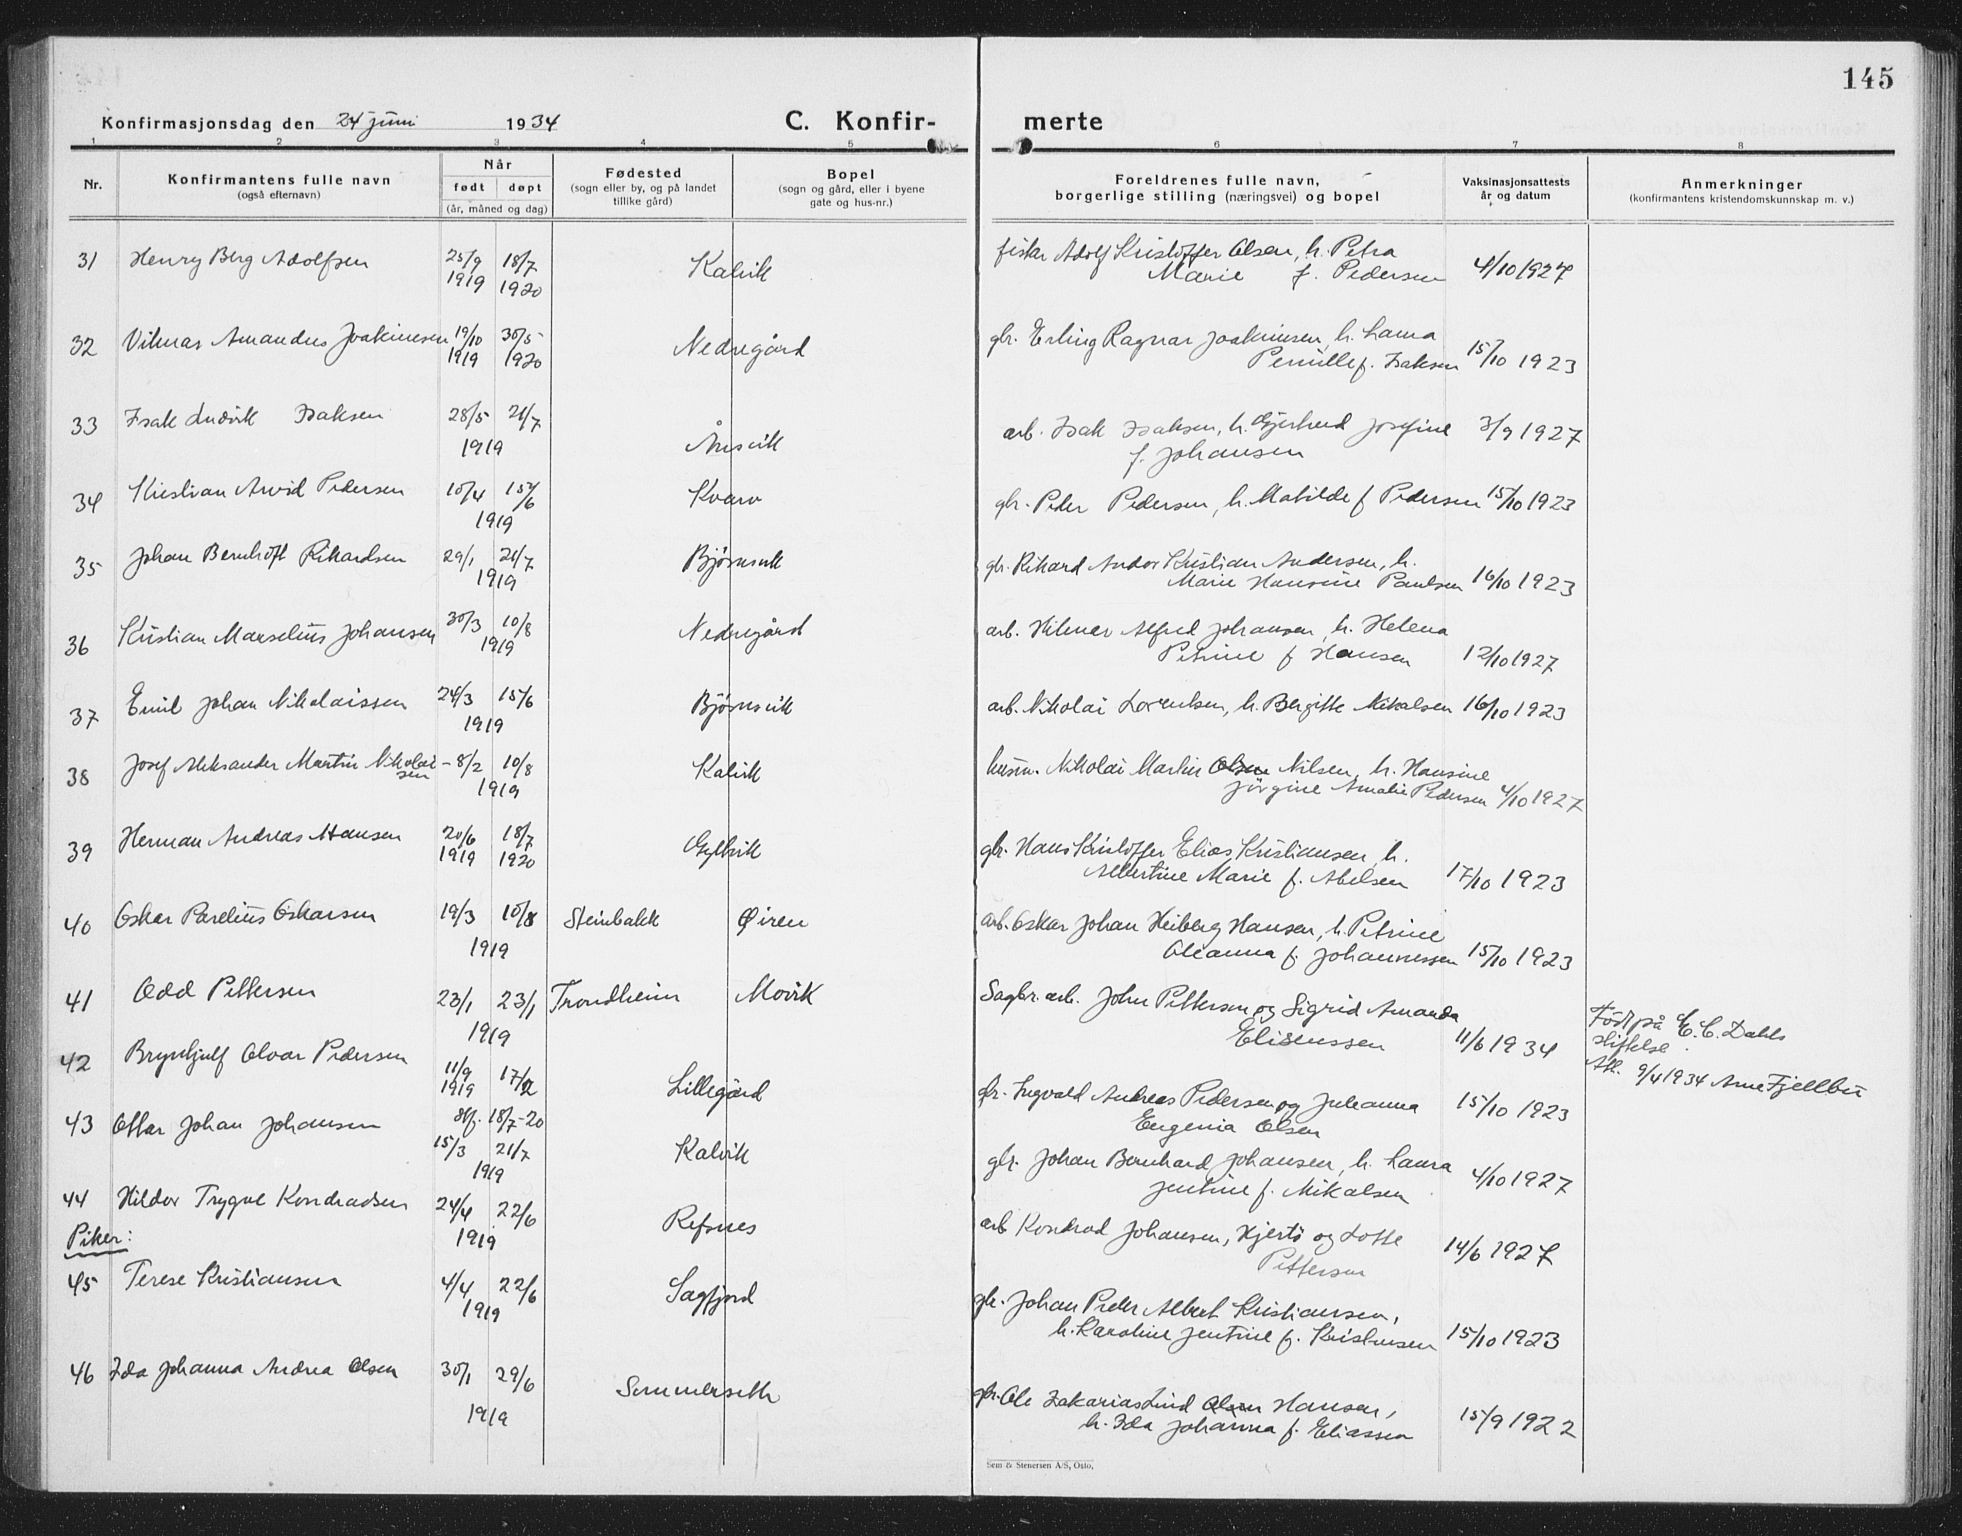 145
Konfirmasjonsdag den 24 juni 1934 C. Konfir- merte
1 2 3 4 5 6 7 8
Nr. Konfirmantens fulle navn (også efternavn) Når født døpt (år, måned og dag) Fødested (sogn eller by, og på landet tillike gård) Bopel (sogn og gård, eller i byene gate og hus-nr.) Foreldrenes fulle navn, borgerlige stilling (næringsvei) og bopel Vaksinasjonsattests år og datum Anmerkninger (konfirmantens kristendomskunnskap m. v.)
31 Henry Berg Adolfsen 25/9 1919 18/7 1920 Kalvik fisker Adolf Kristoffer Olsen, h. Petra
Marie f. Pedersen 4/10 1927
32 Vilmar Amandus Joakimsen 19/10 1919 30/5 1920 Nedregård gbr. Erling Ragnar Joakimsen, h. Laura
Pernille f. Isaksen 15/10 1923
33 Isak Ludvik Isaksen 28/5 21/7 1919 Ånsvik arb. Isak Isaksen, h. Gjertrud Josefine
f. Johansen 3/9 1927
34 Kristian Arvid Pedersen 10/4 15/6 1919 Kvarv gbr. Peder Pedersen, h. Matilde f Pedersen 15/10 1923
35 Johan Bernhoft Rikardsen 29/1 21/7 1919 Bjørnsvik gbr. Rikard Andor Kristian Andersen, h.
Marie Hansine Paulsen 16/10 1923
36 Kristian Marselius Johansen 30/3 10/8 1919 Nedregård arb. Hilmar Alfred Johansen, h. Helena
Petrine f Hansen 12/10 1927
37 Emil Johan Nikolaissen 24/3 15/6 1919 Bjørnsvik arb. Nikolai Lorentsen, h. Bergitte Mikalsen 16/10 1923
38 Josef Aleksander Martin Nikolai-
sen 8/2 10/8 1919 Kalvik husm. Nikolai Martin Olsen Nilsen, h. Hansine
Jørgine Amalie Pedersen 4/10 1927
39 Herman Andreas Hansen 20/6 1919 18/7 1920 Gyltvik gbr. Hans Kristoffer Elias Kristiansen, h.
Albertine Marie f. Abelsen 17/10 1923
40 Oskar Parelius Oskarsen 19/3 10/8 1919 Steinbakk Øiren arb. Oskar Johan Heiberg Hansen, h. Petrine
Oleanna f. Johannessen 15/10 1923
41 Odd Pettersen 23/1 23/1 1919 Trondheim Movik Sagbr. arb. John Pettersen og Sigrid Amanda
Eliseussen 11/6 1934
Født på E. C. Dahls
stiftelse.
Att. 9/4 1934 Arne Fjellbu
42 Brynhjulf Alvar Pedersen 11/9 1919 17/2 Lillegård gbr. Ingvald Andreas Pedersen og Juleanna
Eugenia Olsen 15/10 1923
stf. 18/7-20
43 Ottar Johan Johansen 15/3 21/7 1919 Kalvik gbr. Johan Bernhard Johansen, h. Laura
Jentine f. Mikalsen 4/10 1927
44 Hildor Trygve Kondradsen 24/4 22/6 1919 Refsnes arb Kondrad Johansen, Hjertø og Lotte
Pettersen 14/6 1927
Piker:
45 Terese Kristiansen 4/4 22/6 1919 Sagfjord gbr. Johan Peder Albert Kristiansen,
h. Karoline Jentine f. Kristensen 15/10 1923
46 Ida Johanna Andrea Olsen 30/1 29/6 1919 Sommerseth gbr. Ole Zakarias Lind Olsen Hansen,
h. Ida Johanna f. Eliassen 15/9 1922
Sem & Stenersen A/S, Oslo.